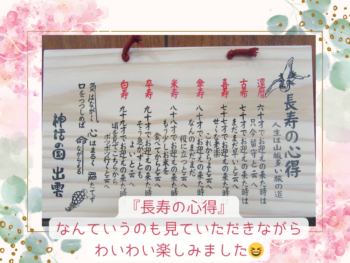 長寿の心得
人生は山坂多い旅の道
還暦 六十才でお迎えの来た時は
只今留守と云へ
古希 七十才でお迎えの来た時は
まだまだ早いと云へ
喜寿 七十七才でお迎えの来た時は
せくな老楽
これからよと云へ
傘寿 八十才でお迎えの来た時は
なんのまだまだ
役に立つと云へ
米寿 八十八才でお迎えの来た時は
もう少しお米を
食べてからと云へ
卒寿 九十才でお迎えの来た時は
そう急がずとも
よいと云へ
白寿 九十九才でお迎えの来た時は
頃を見てこちらから
ボツボツ行くと云へ
気はながく 心はまるく 腹たてず
口をつつしめば 命ながらへる
神話の国 出雲
『長寿の心得』
なんていうのも見ていただきながら
わいわい楽しみました😆